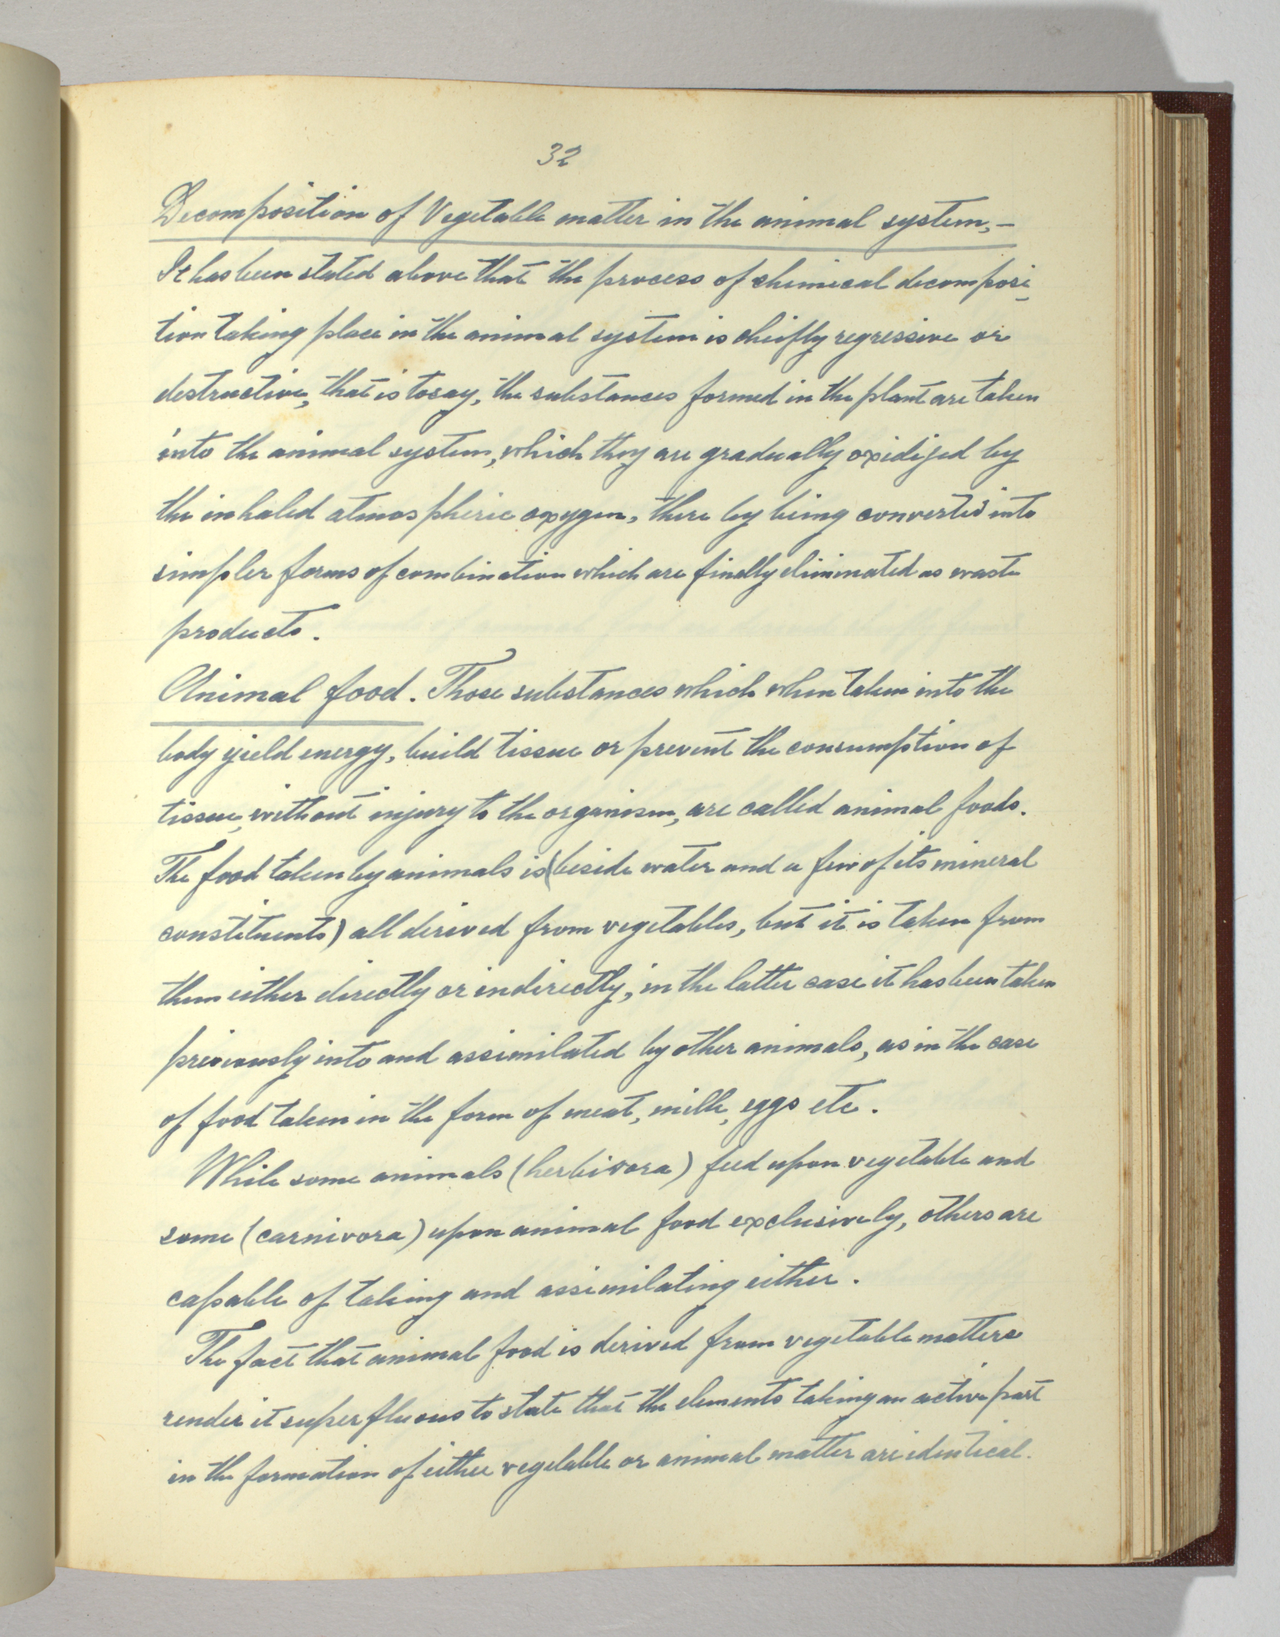 32
Decomposition of Vegetable matter in the animal system,-
It has been stated above that the process of chemical decomposi-
tion taking place in the animal system is chiefly regressive or
destructive, that is to say, the substances formed in the plant are taken
into the animal system, which they are gradually oxidized by
the inhaled atmospheric oxygen, there by being converted into
simpler forms of combination which are finally eliminated as waste
products.
Animal food. Those substances which when taken into the
body yield energy, build tissue or prevent the consumption of
tissue, without injury to the organism, are called animal foods.
The food taken by animals is (beside water and a few of its mineral
constituents) all derived from vegetables, but it is taken from
them either directly or indirectly; in the latter case it has been taken
previously into and assimilated by other animals, as in the case
of food taken in the form of meat, milk, eggs etc.
While some animals (herbivora) feed upon vegetable and
some (carnivora) upon animal food exclusively, others are
capable of taking and assimilating either.
The fact that animal food is derived from vegetable matters
render it superfluous to state that the elements taking an active part
in the formation of either vegetable or animal matter are identical.